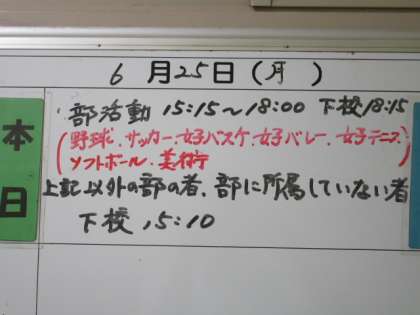 6月25日(月)
本日
部活動 15:15〜18:00 下校18:15
(野球、サッカー、女子バスケ、女子バレー、女子テニス
ソフトボール、美術)
上記以外の部の者、部に所属していない者
下校 15:10